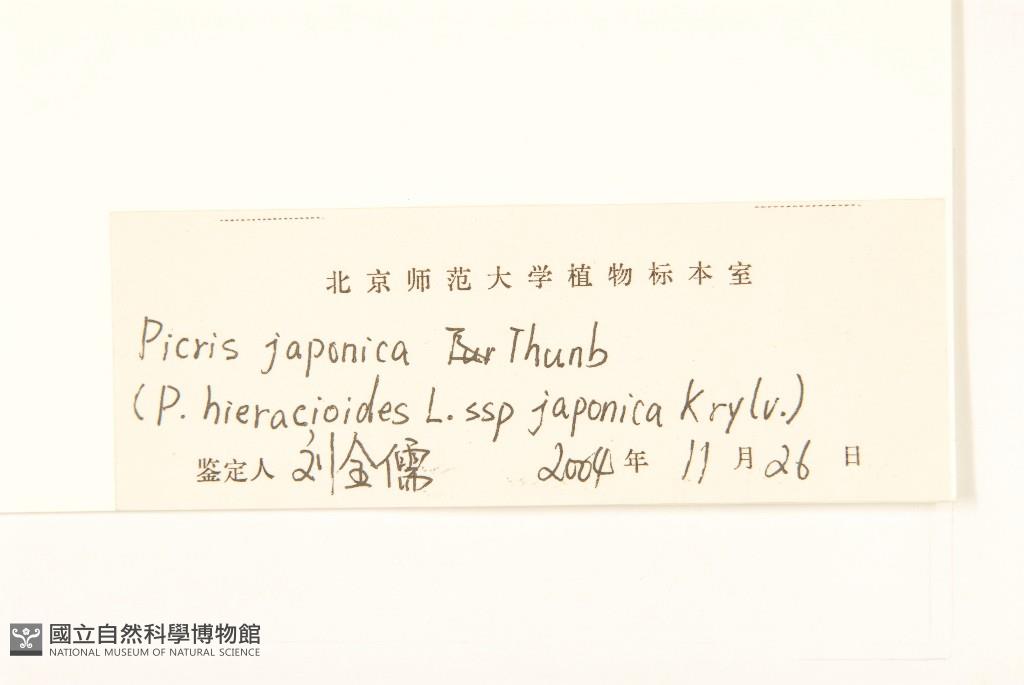 北京师范大学植物标本室
Picris japonica Thunb
(P. hieracioides L. ssp japonica Krylv.)
鉴定人 刘全儒 2004 年 11 月 26 日
國立自然科學博物館
NATIONAL MUSEUM OF NATURAL SCIENCE